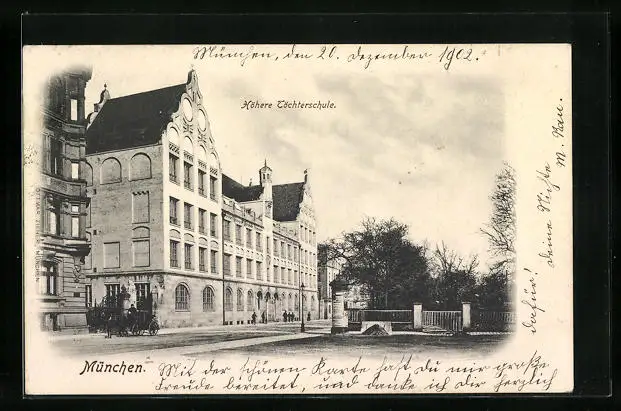 München, den 20. Dezember 1902.
Höhere Töchterschule.
München.
Mit der schönen Karte hast Du mir große
Freude bereitet, und danke ich Dir herzlich
dafür!
Deine Nichte
M. Rau.